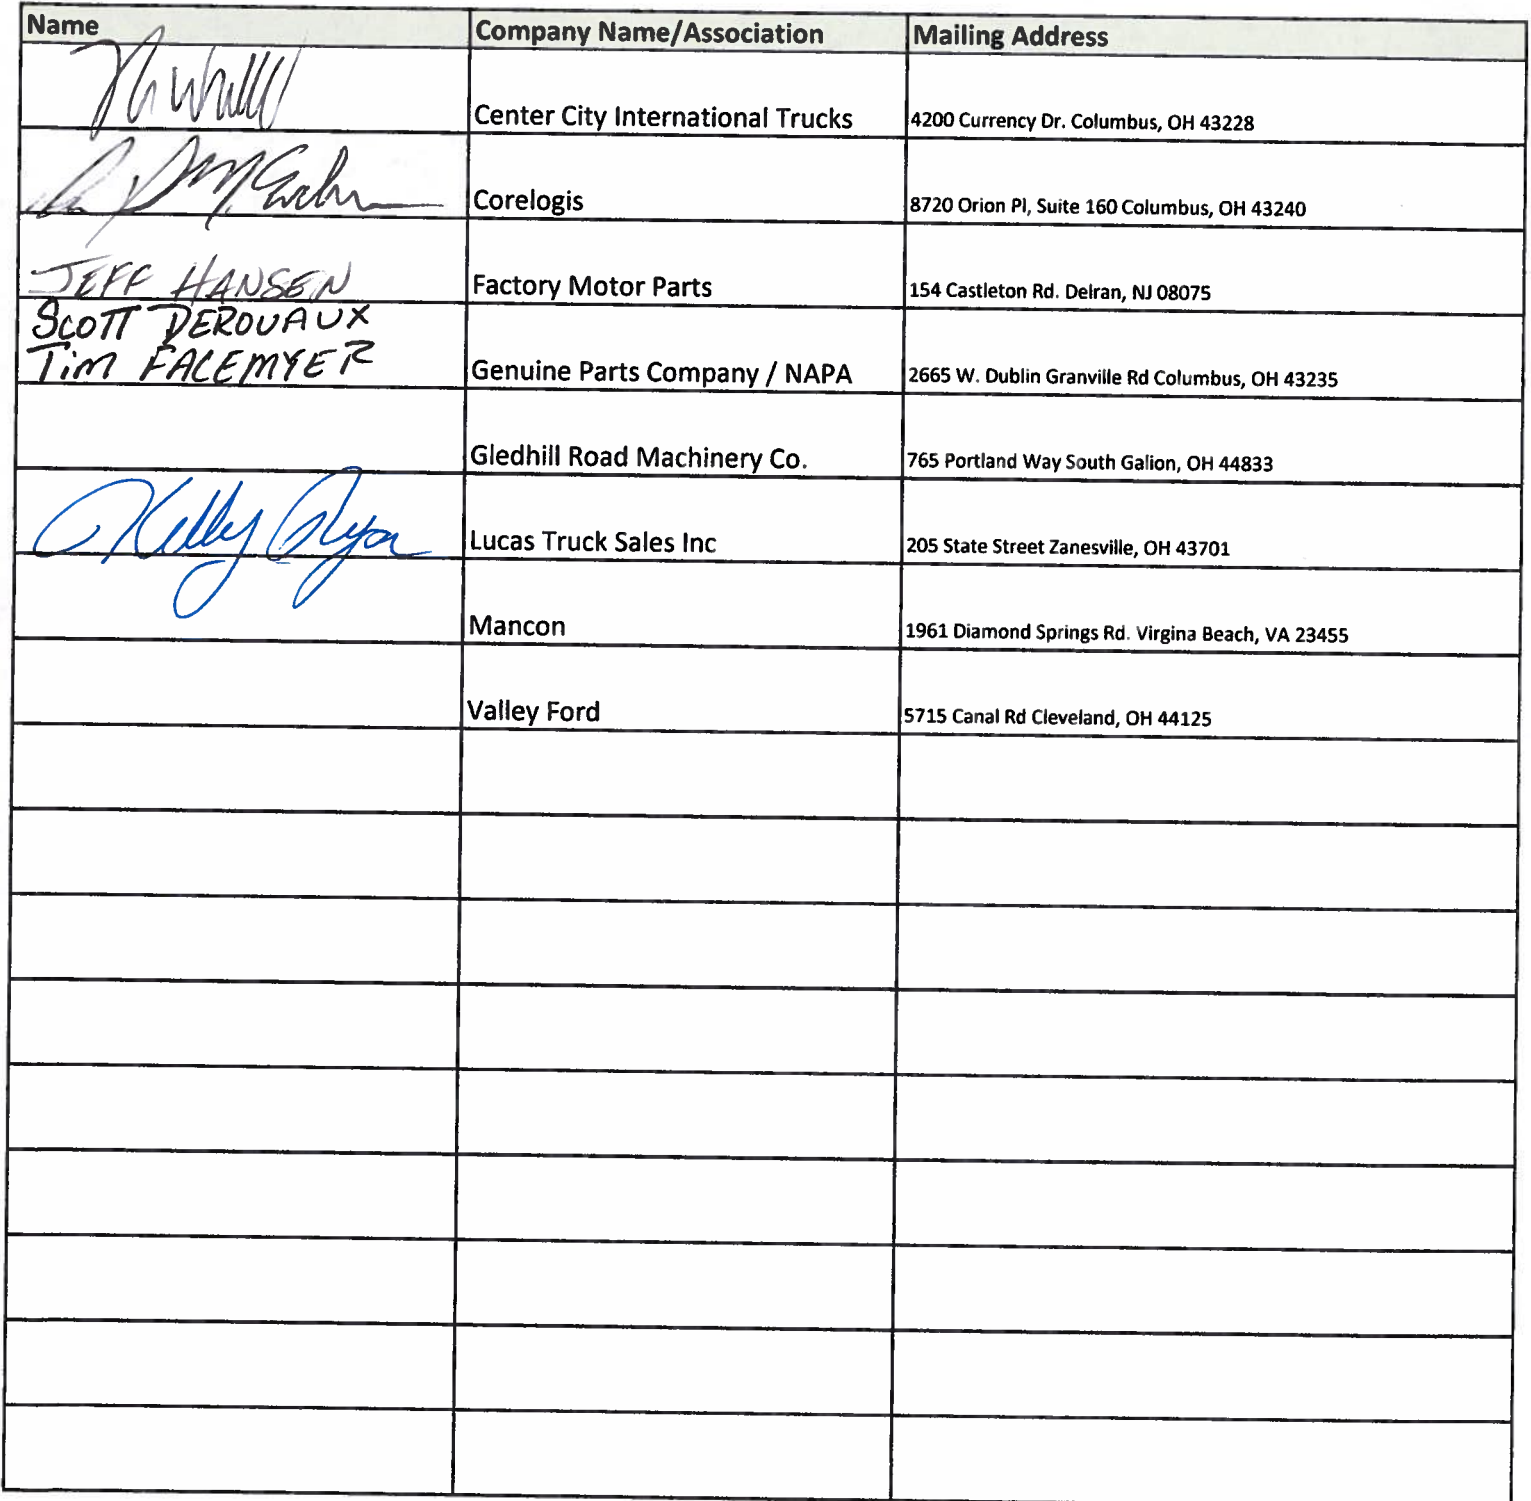 Name Company Name/Association Mailing Address
Center City International Trucks 4200 Currency Dr. Columbus, OH 43228
Corelogis 8720 Orion Pl, Suite 160 Columbus, OH 43240
JEFF HANSEN Factory Motor Parts 154 Castleton Rd. Delran, NJ 08075
SCOTT DEROUAUX
TIM FACEMYER Genuine Parts Company / NAPA 2665 W. Dublin Granville Rd Columbus, OH 43235
Gledhill Road Machinery Co. 765 Portland Way South Galion, OH 44833
Kelly Lucas Truck Sales Inc 205 State Street Zanesville, OH 43701
Mancon 1961 Diamond Springs Rd. Virgina Beach, VA 23455
Valley Ford 5715 Canal Rd Cleveland, OH 44125